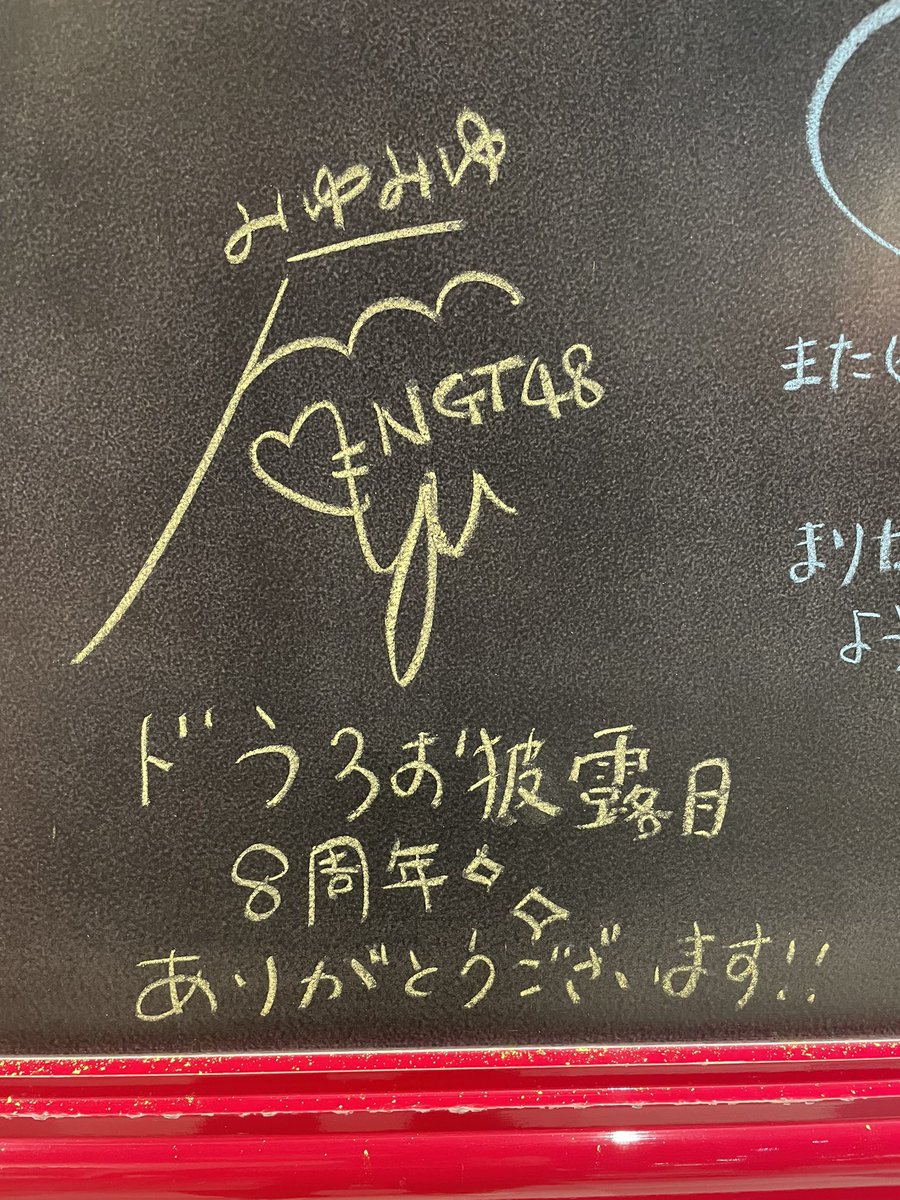 みゆみゆ
NGT48
yu
ドうろお披露目
8周年
ありがとうございます!!
また
まり
よう